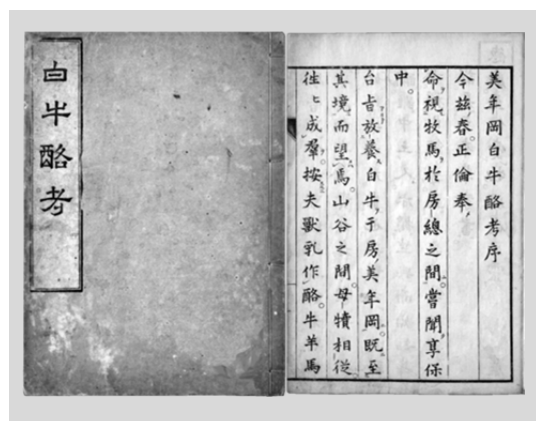 白牛酪考
美年岡白牛酪考序
今茲春。正倫奉
命視牧馬於房總之間。嘗聞享保
中。
台旨放養白牛于房美年岡。既至
其境而望焉。山谷之間。母犢相從
徃々成羣。按夫獸乳作酪。牛羊馬